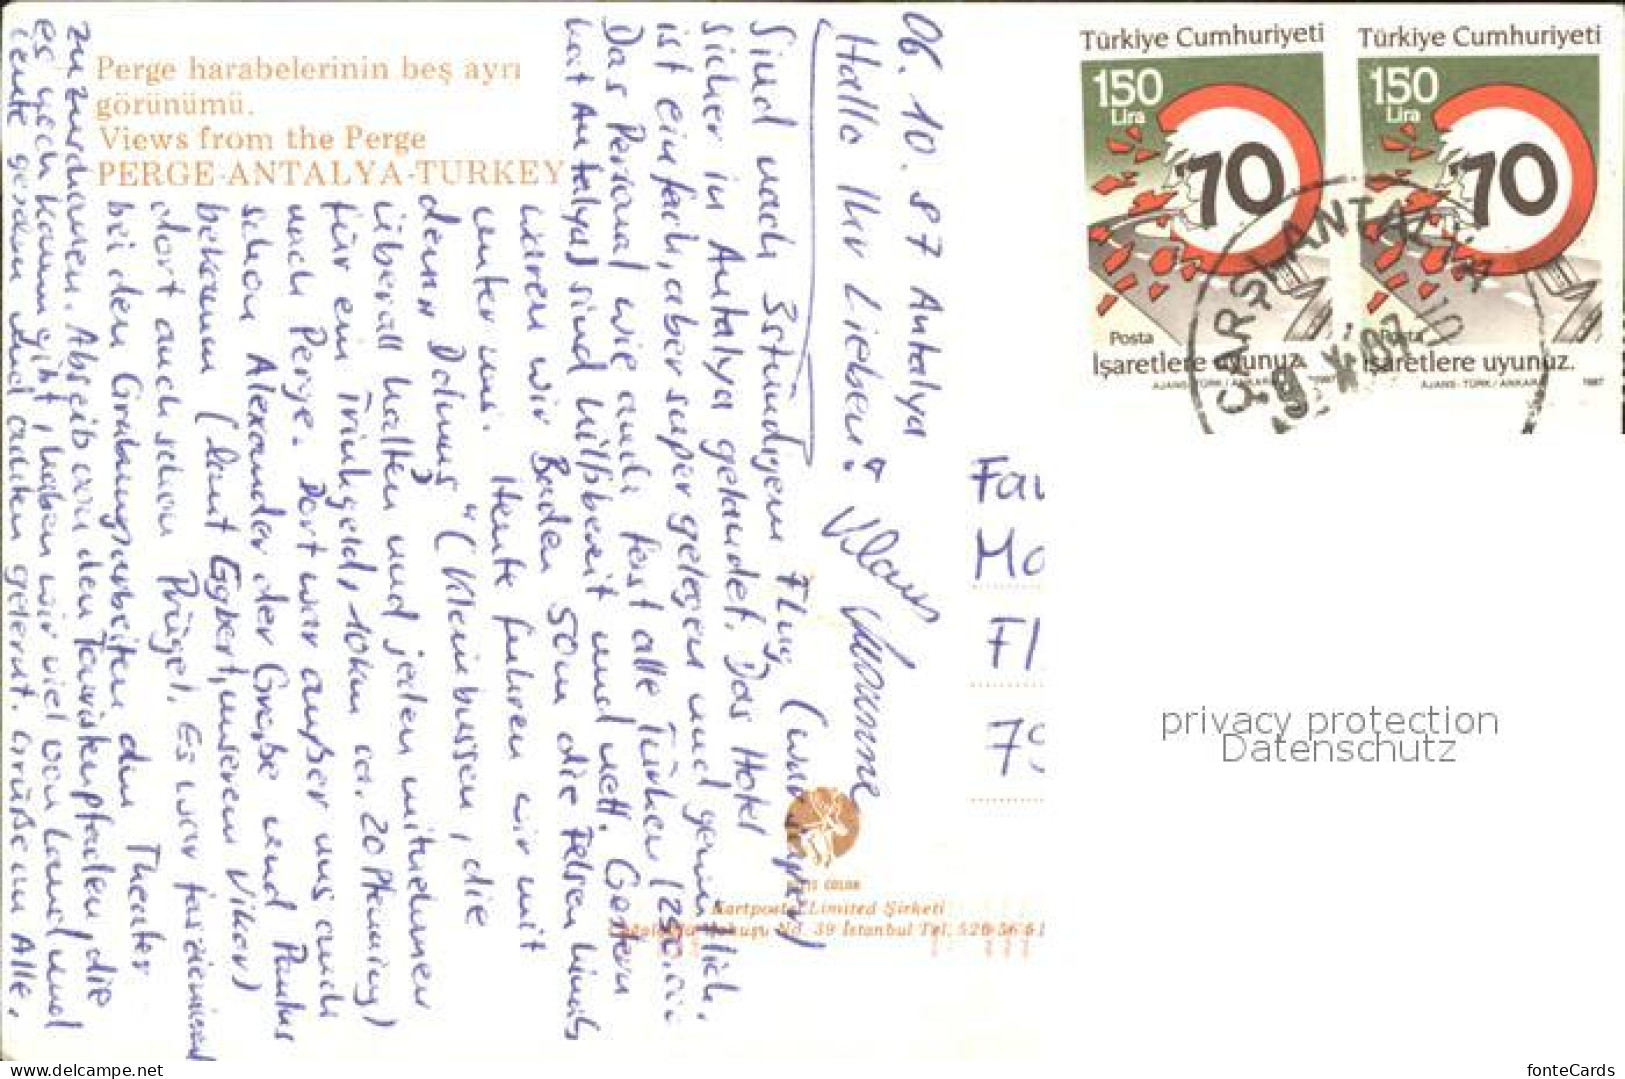 Perge harabelerinin beş ayrı
görünümü.
Views from the Perge
PERGE-ANTALYA-TURKEY
06. 10. 87 Antalya
Hallo Ihr Lieben!
Sind nach 3stündigem Flug
sicher in Antalya gelandet. Das Hotel
ist einfach, aber super gelegen und gemütlich.
Das Personal wie auch fast alle Türken
mit Antalya) sind hilfsbereit und nett. Gestern
waren wir Baden 50m die Felsen hinab
unter uns. Heute fuhren wir mit
dem "Dolmuş" (Kleinbussen, die
überall halten und jeden mitnehmen
für ein Trinkgeld, 10km ca. 20 Pfennig)
nach Perge. Dort war außer uns auch
schon Alexander der Große und Paulus
bekamm (laut Egbert, unserem Vikar)
dort auch schon Prügel. Es war faszinierend
bei den Grabungsarbeiten am Theater
zuzuschauen. Abseits von den Touristenpfaden, die
es noch kaum gibt, haben wir viel von Land und
Leute gesehen und auch gelernt. Grüße an Alle.
Klaus Susanne
Kartpostal Limited Şirketi
Yokuşu No. 39 İstanbul Tel. 526 36 61
Türkiye Cumhuriyeti
150
Lira
70
Posta
İşaretlere uyunuz.
AJANS-TÜRK / ANKARA 1987
Türkiye Cumhuriyeti
150
Lira
70
Posta
İşaretlere uyunuz.
AJANS-TÜRK / ANKARA 1987
ÇARŞI ANTALYA
Fa
Mo
Fl
79
privacy protection
Datenschutz
www.delcampe.net
your card
fonteCards